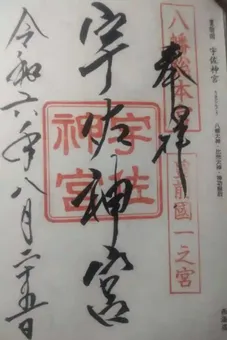 奉拝
八幡総本宮
豊前國一之宮
宇佐神宮
宇佐神宮
令和六年八月二十五日
宇佐神宮